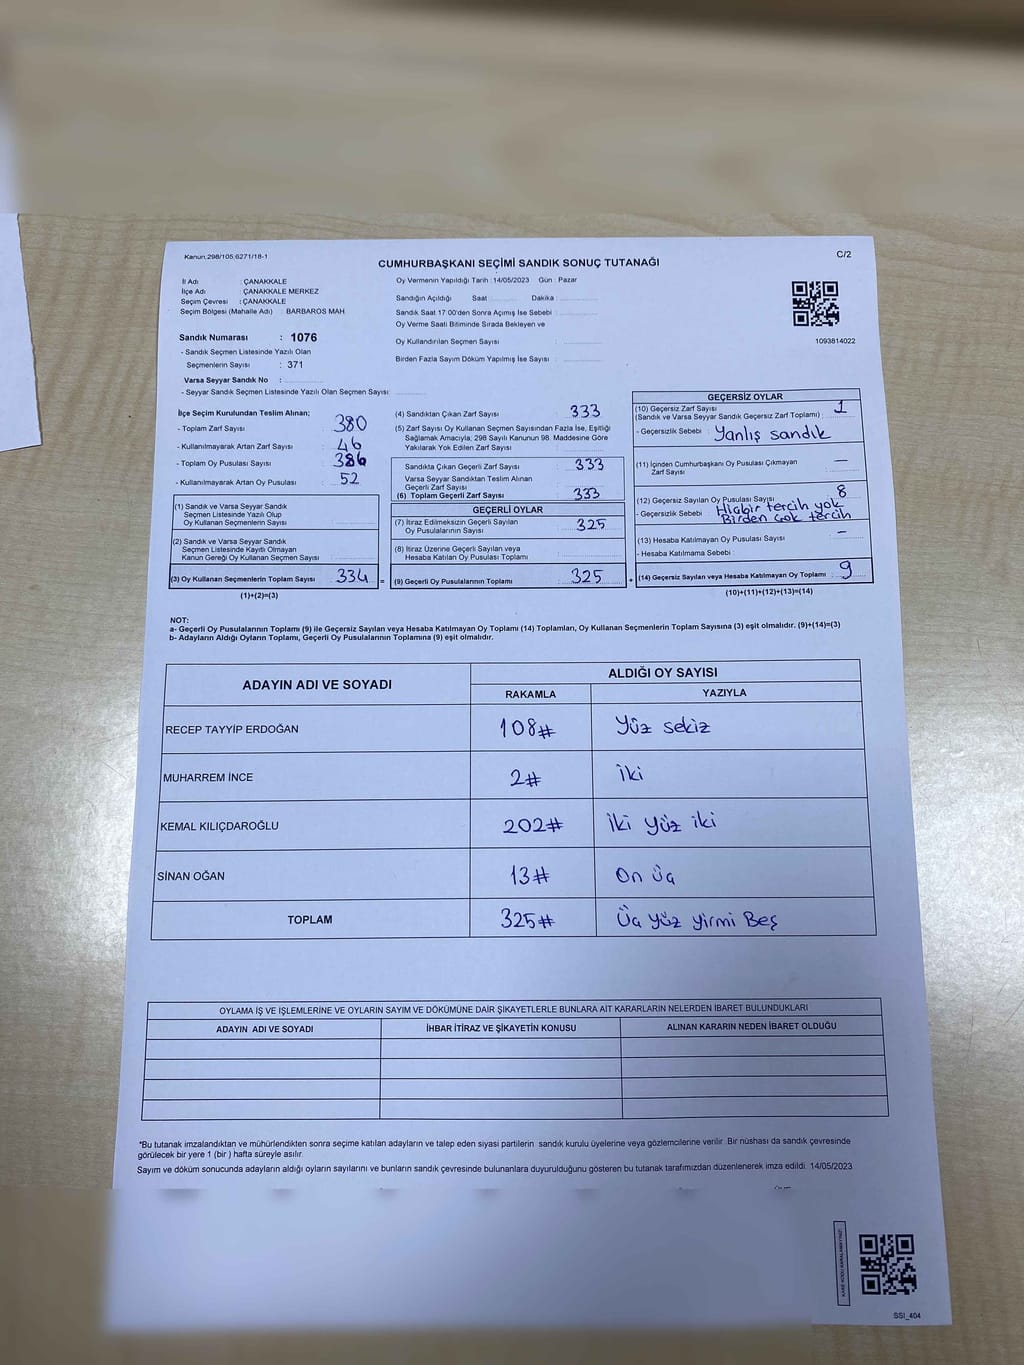 Kanun:298/105;6271/18-1
C/2
CUMHURBAŞKANI SEÇİMİ SANDIK SONUÇ TUTANAĞI
İl Adı : ÇANAKKALE
İlçe Adı : ÇANAKKALE MERKEZ
Seçim Çevresi : ÇANAKKALE
Seçim Bölgesi (Mahalle Adı) : BARBAROS MAH.
Sandık Numarası : 1076
- Sandık Seçmen Listesinde Yazılı Olan
Seçmenlerin Sayısı : 371
Varsa Seyyar Sandık No :
- Seyyar Sandık Seçmen Listesinde Yazılı Olan Seçmen Sayısı
Oy Vermenin Yapıldığı Tarih :14/05/2023 Gün : Pazar
Sandığın Açıldığı Saat Dakika :
Sandık Saat 17:00'den Sonra Açımış İse Sebebi :
Oy Verme Saati Bitiminde Sırada Bekleyen ve
Oy Kullandırılan Seçmen Sayısı :
Birden Fazla Sayım Döküm Yapılmış İse Sayısı :
1093814022
İlçe Seçim Kurulundan Teslim Alınan;
- Toplam Zarf Sayısı : 380
- Kullanılmayarak Artan Zarf Sayısı : 46
- Toplam Oy Pusulası Sayısı : 386
- Kullanılmayarak Artan Oy Pusulası : 52
(1) Sandık ve Varsa Seyyar Sandık
Seçmen Listesinde Yazılı Olup
Oy Kullanan Seçmenlerin Sayısı
(2) Sandık ve Varsa Seyyar Sandık
Seçmen Listesinde Kayıtlı Olmayan
Kanun Gereği Oy Kullanan Seçmen Sayısı
(3) Oy Kullanan Seçmenlerin Toplam Sayısı : 334 =
(1)+(2)=(3)
(4) Sandıktan Çıkan Zarf Sayısı : 333
(5) Zarf Sayısı Oy Kullanan Seçmen Sayısından Fazla İse, Eşitliği
Sağlamak Amacıyla; 298 Sayılı Kanunun 98. Maddesine Göre
Yakılarak Yok Edilen Zarf Sayısı
Sandıkta Çıkan Geçerli Zarf Sayısı : 333
Varsa Seyyar Sandıktan Teslim Alınan
Geçerli Zarf Sayısı
(6) Toplam Geçerli Zarf Sayısı : 333
GEÇERLİ OYLAR
(7) İtiraz Edilmeksizin Geçerli Sayılan
Oy Pusulalarının Sayısı : 325
(8) İtiraz Üzerine Geçerli Sayılan veya
Hesaba Katılan Oy Pusulası Toplamı
(9) Geçerli Oy Pusulalarının Toplamı : 325 +
GEÇERSİZ OYLAR
(10) Geçersiz Zarf Sayısı
(Sandık ve Varsa Seyyar Sandık Geçersiz Zarf Toplamı) : 1
- Geçersizlik Sebebi : Yanlış sandık
(11) İçinden Cumhurbaşkanı Oy Pusulası Çıkmayan
Zarf Sayısı —
(12) Geçersiz Sayılan Oy Pusulası Sayısı 8
- Geçersizlik Sebebi : Hiçbir tercih yok
Birden çok tercih
(13) Hesaba Katılmayan Oy Pusulası Sayısı : -
- Hesaba Katılmama Sebebi :
(14) Geçersiz Sayılan veya Hesaba Katılmayan Oy Toplamı : 9
(10)+(11)+(12)+(13)=(14)
NOT:
a- Geçerli Oy Pusulalarının Toplamı (9) ile Geçersiz Sayılan veya Hesaba Katılmayan Oy Toplamı (14) Toplamları, Oy Kullanan Seçmenlerin Toplam Sayısına (3) eşit olmalıdır. (9)+(14)=(3)
b- Adayların Aldığı Oyların Toplamı, Geçerli Oy Pusulalarının Toplamına (9) eşit olmalıdır.
ADAYIN ADI VE SOYADI
ALDIĞI OY SAYISI
RAKAMLA YAZIYLA
RECEP TAYYİP ERDOĞAN 108# Yüz sekiz
MUHARREM İNCE 2# İki
KEMAL KILIÇDAROĞLU 202# İki Yüz iki
SİNAN OĞAN 13# On Üç
TOPLAM 325# Üç Yüz Yirmi Beş
OYLAMA İŞ VE İŞLEMLERİNE VE OYLARIN SAYIM VE DÖKÜMÜNE DAİR ŞİKAYETLERLE BUNLARA AİT KARARLARIN NELERDEN İBARET BULUNDUKLARI
ADAYIN ADI VE SOYADI İHBAR İTİRAZ VE ŞİKAYETİN KONUSU ALINAN KARARIN NEDEN İBARET OLDUĞU
*Bu tutanak imzalandıktan ve mühürlendikten sonra seçime katılan adayların ve talep eden siyasi partilerin sandık kurulu üyelerine veya gözlemcilerine verilir. Bir nüshası da sandık çevresinde
görülecek bir yere 1 (bir ) hafta süreyle asılır.
Sayım ve döküm sonucunda adayların aldığı oyların sayılarını ve bunların sandık çevresinde bulunanlara duyurulduğunu gösteren bu tutanak tarafımızdan düzenlenerek imza edildi. 14/05/2023
KARE KODU KARALAMAYINIZ!
SSI_404